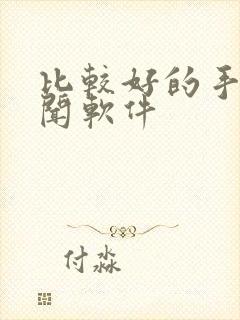 比較好的手
聞軟件
付淼